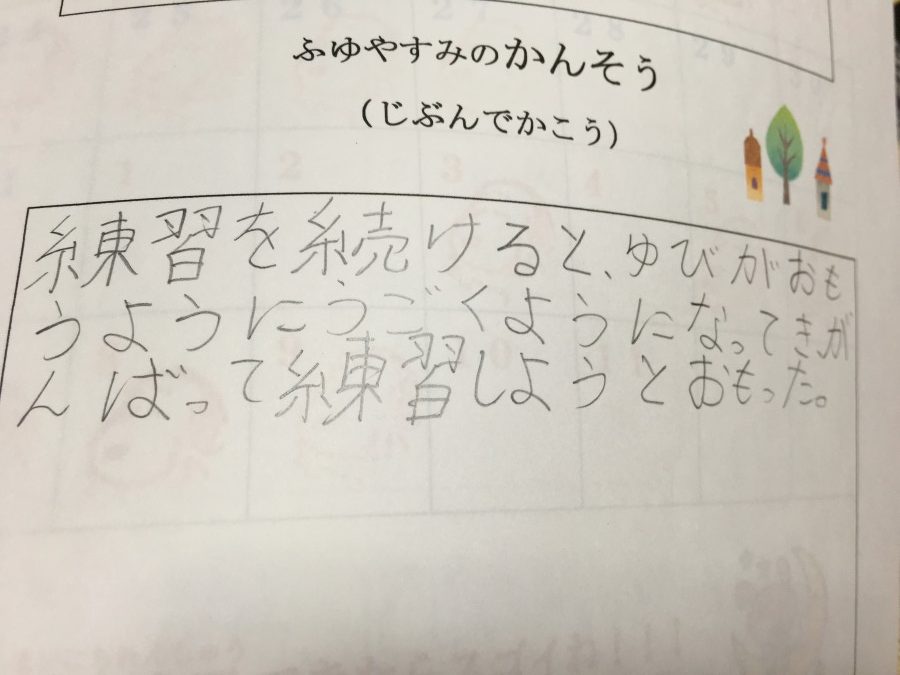 ふゆやすみのかんそう
(じぶんでかこう)
練習を続けると、ゆびがおも
うようにうごくようになってきが
んばって練習しようとおもった。